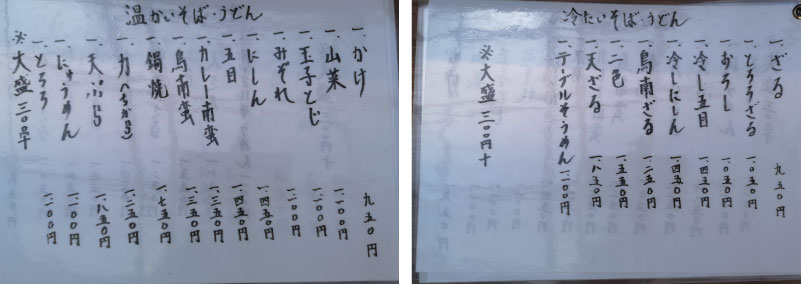 温かいそば・うどん
一、かけ 九五〇円
一、山菜 一、一〇〇円
一、玉子とじ 一、一〇〇円
一、みぞれ 一、一〇〇円
一、にしん 一、四五〇円
一、五目 一、四五〇円
一、カレー南蛮 一、三五〇円
一、鳥南蛮 一、三五〇円
一、鍋焼 一、七五〇円
一、力(ちから) 一、二五〇円
一、天ぷら 一、八五〇円
一、にゅうめん 一、一〇〇円
一、とろろ 一、一〇〇円
※大盛 三〇〇円
冷たいそば・うどん
一、ざる 九五〇円
一、とろろざる 一、〇五〇円
一、おろし 一、〇五〇円
一、冷し五目 一、四五〇円
一、冷しにしん 一、四五〇円
一、鳥南ざる 一、二五〇円
一、二色 一、五五〇円
一、天ざる 一、八五〇円
一、テーブルそうめん 一、一〇〇円
※大盛 三〇〇円+